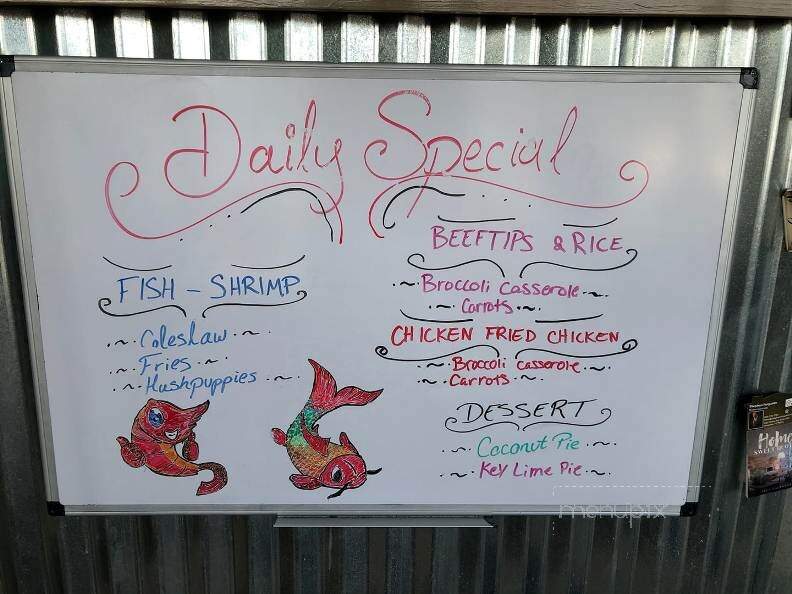 Daily Special
FISH - SHRIMP
Coleslaw
Fries
Hushpuppies
BEEFTIPS & RICE
Broccoli Casserole
Carrots
CHICKEN FRIED CHICKEN
Broccoli casserole
Carrots
DESSERT
Coconut Pie
Key Lime Pie
menupix